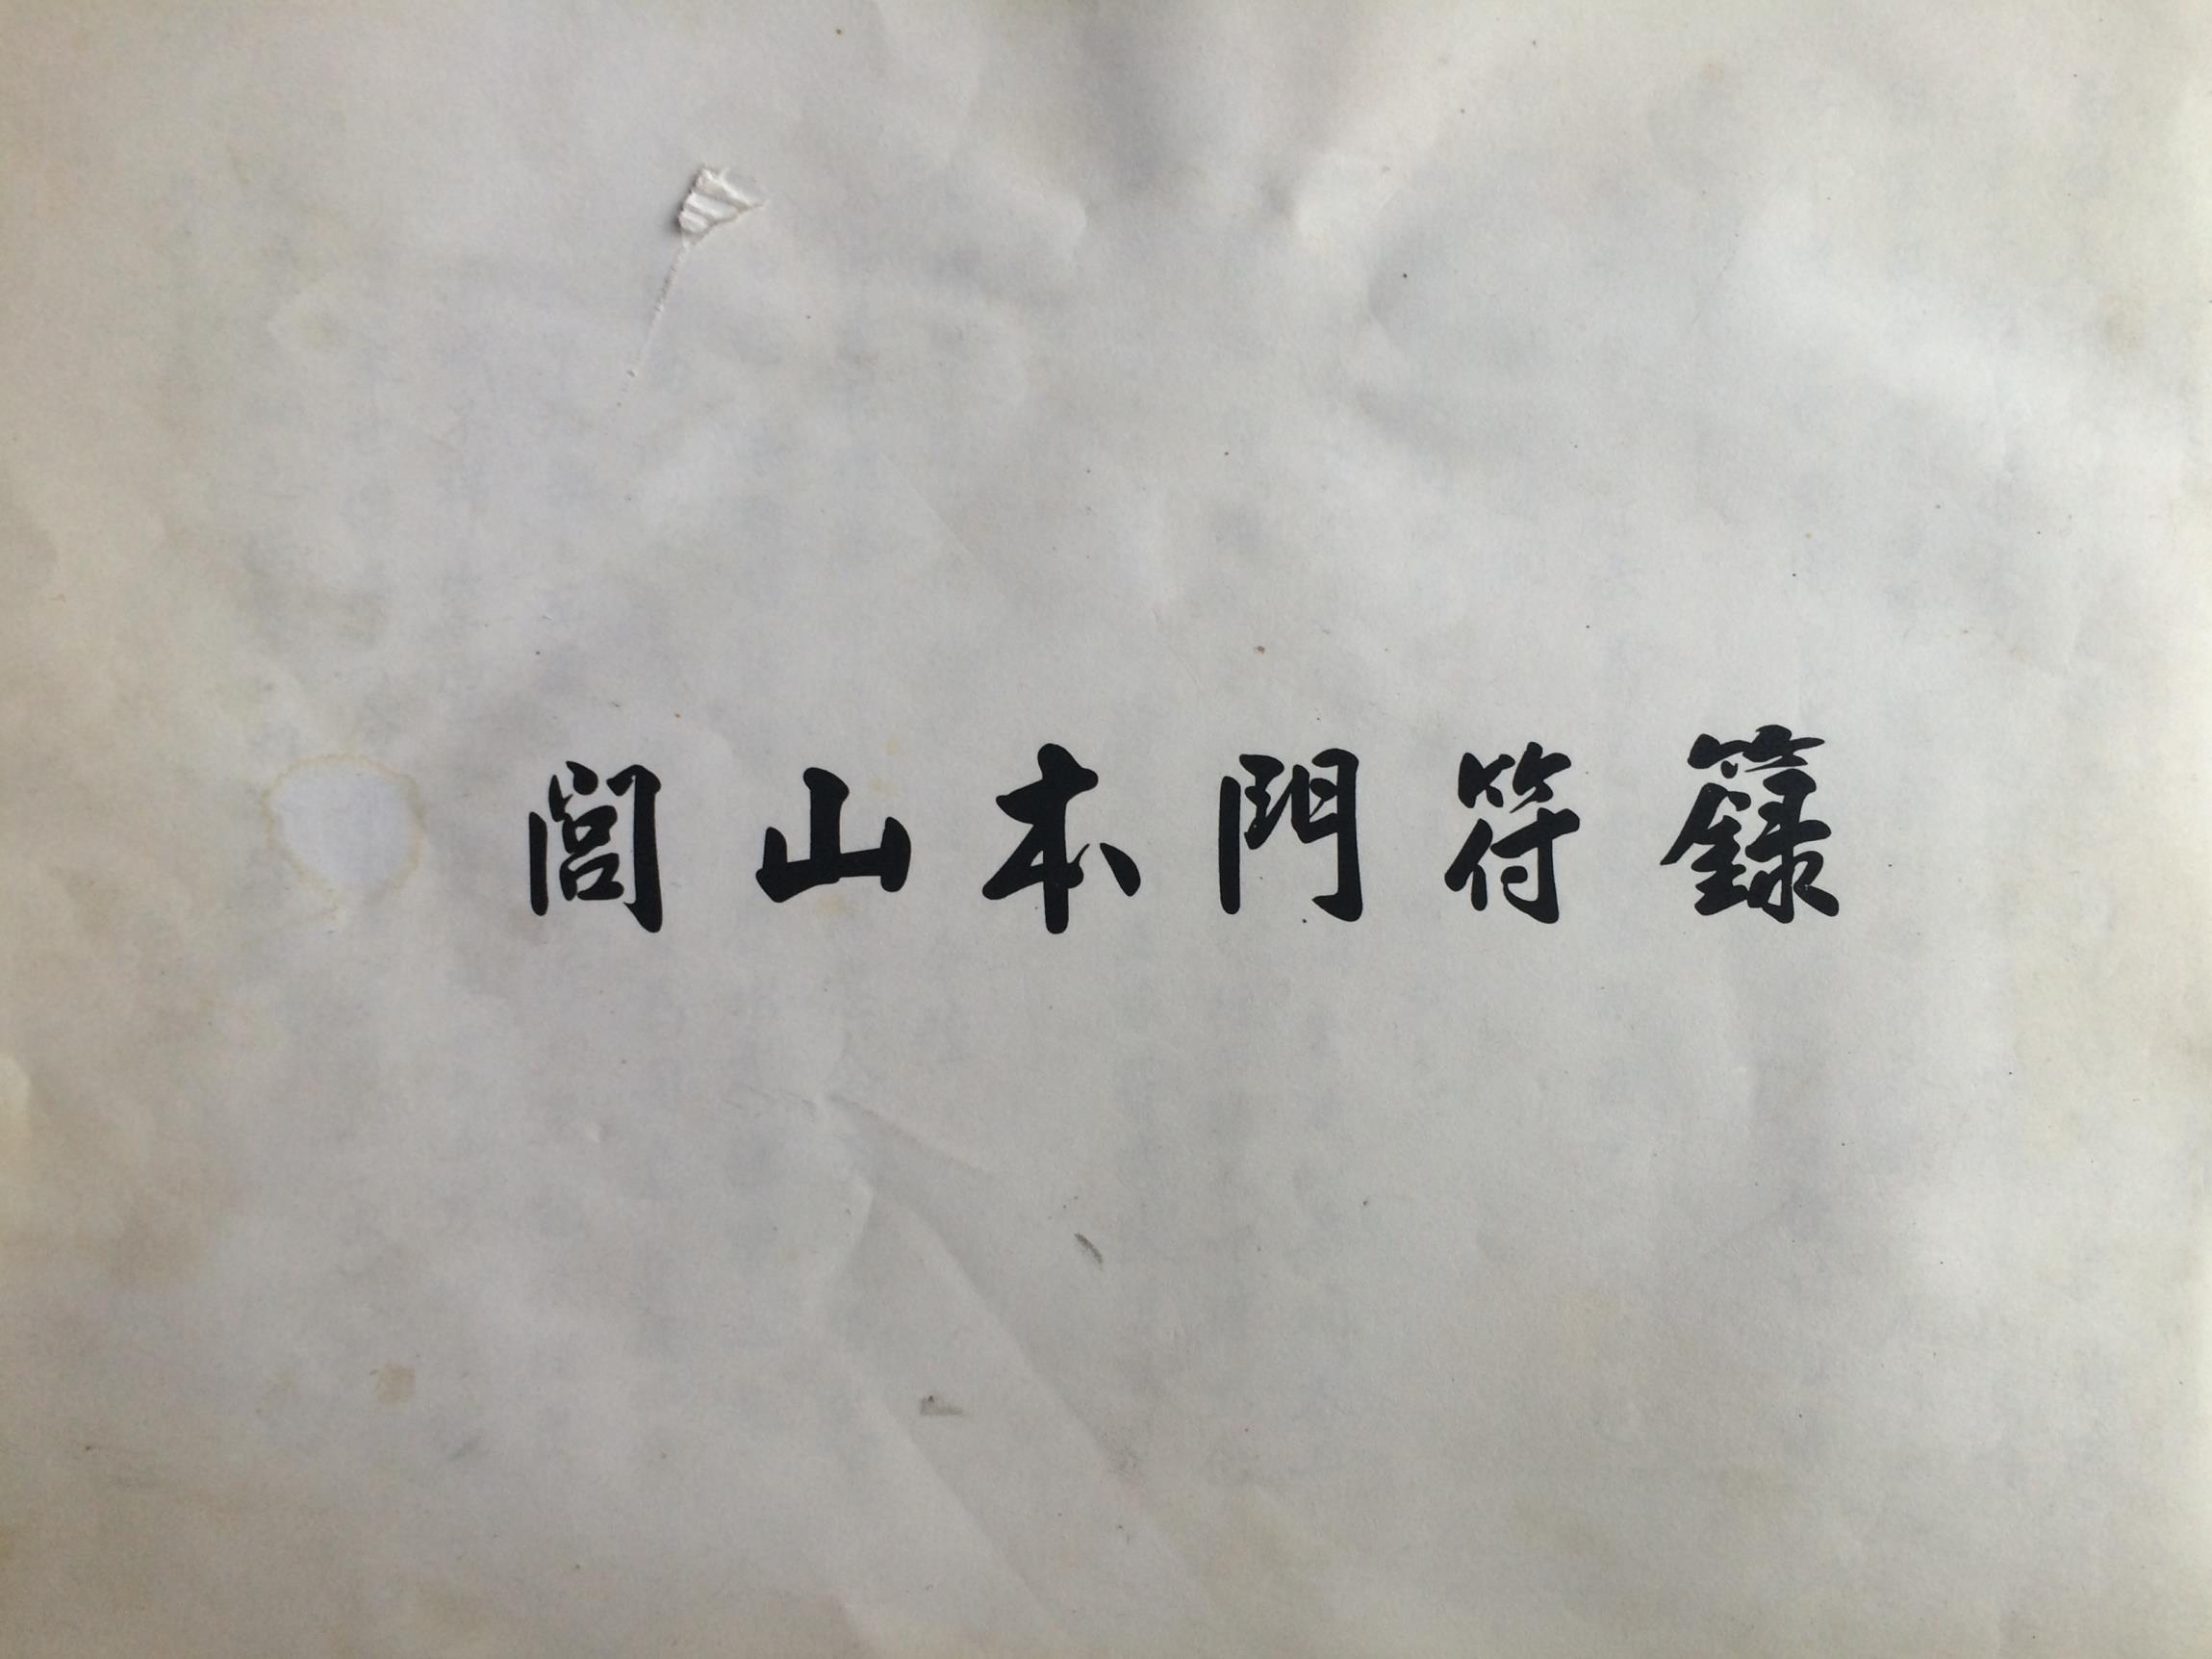 閭山本門符籙